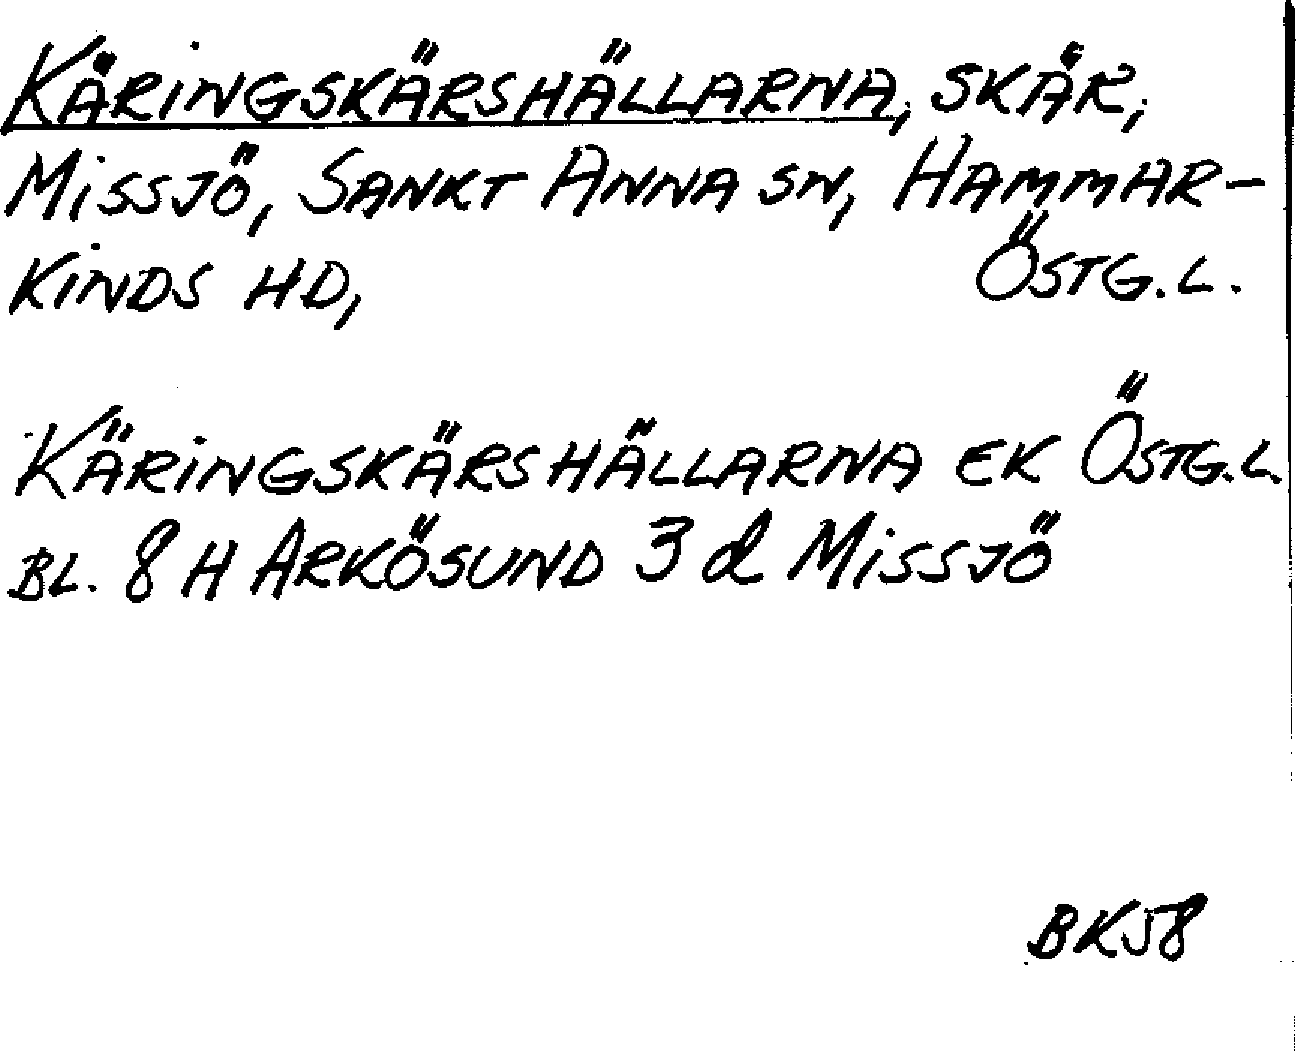 KÄRINGSKÄRSHÄLLARNA, SKÄR,
MISSJÖ, SANKT ANNA SN, HAMMAR-
KINDS HD, ÖSTG.L.
KÄRINGSKÄRSHÄLLARNA EK ÖSTG.L.
BL. 8 H ARKÖSUND 3 d MISSJÖ
BK58